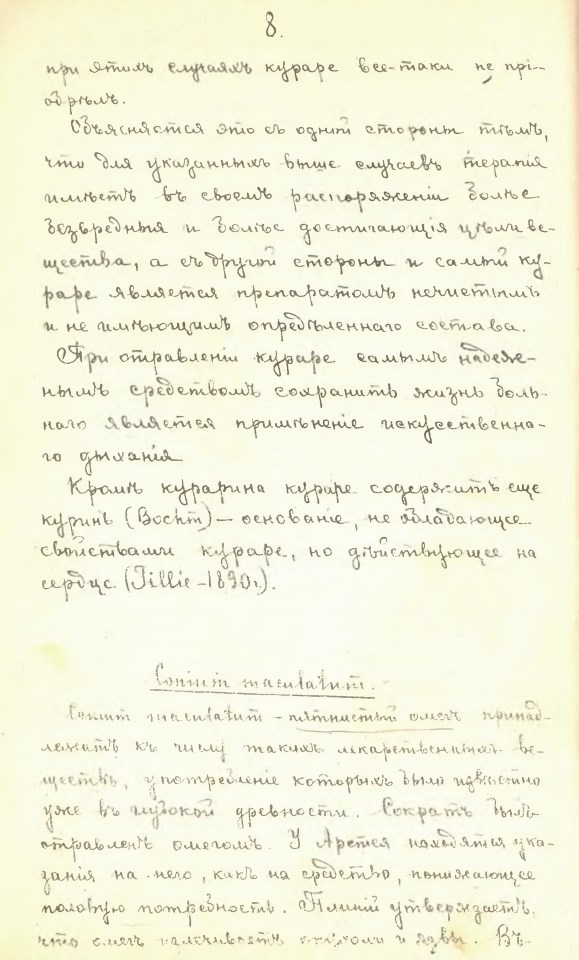 8.
при этихъ случаяхъ кураре все-таки не прі-
обрѣлъ.
Объясняется это съ одной стороны тѣмъ,
что для указанныхъ выше случаевъ терапія
имѣетъ въ своемъ распоряженіи болѣе
безвредныя и болѣе достигающія цѣли ве-
щества, а съ другой стороны и самый ку-
раре является препаратомъ нечистымъ
и не имѣющимъ опредѣленнаго состава.
При отравленіи кураре самымъ надеж-
нымъ средствомъ сохранить жизнь боль-
наго является примѣненіе искусственна-
го дыханія
Кромѣ курарина кураре содержитъ еще
куринъ (Boehm) — основаніе, не обладающее
свойствами кураре, но дѣйствующее на
сердце (Tillie – 1890 г.).
Conium maculatum.
Conium maculatum – пятнистый омегъ принад-
лежитъ къ числу такихъ лекарственныхъ ве-
ществъ, употребленіе которыхъ было извѣстно
уже въ глубокой древности. Сократъ былъ
отравленъ омегомъ. У Аретея находятся ука-
занія на него, какъ на средство, понижающее
половую потребность. Плиній утверждаетъ,
что омегъ излечиваетъ опухоли и язвы. Въ